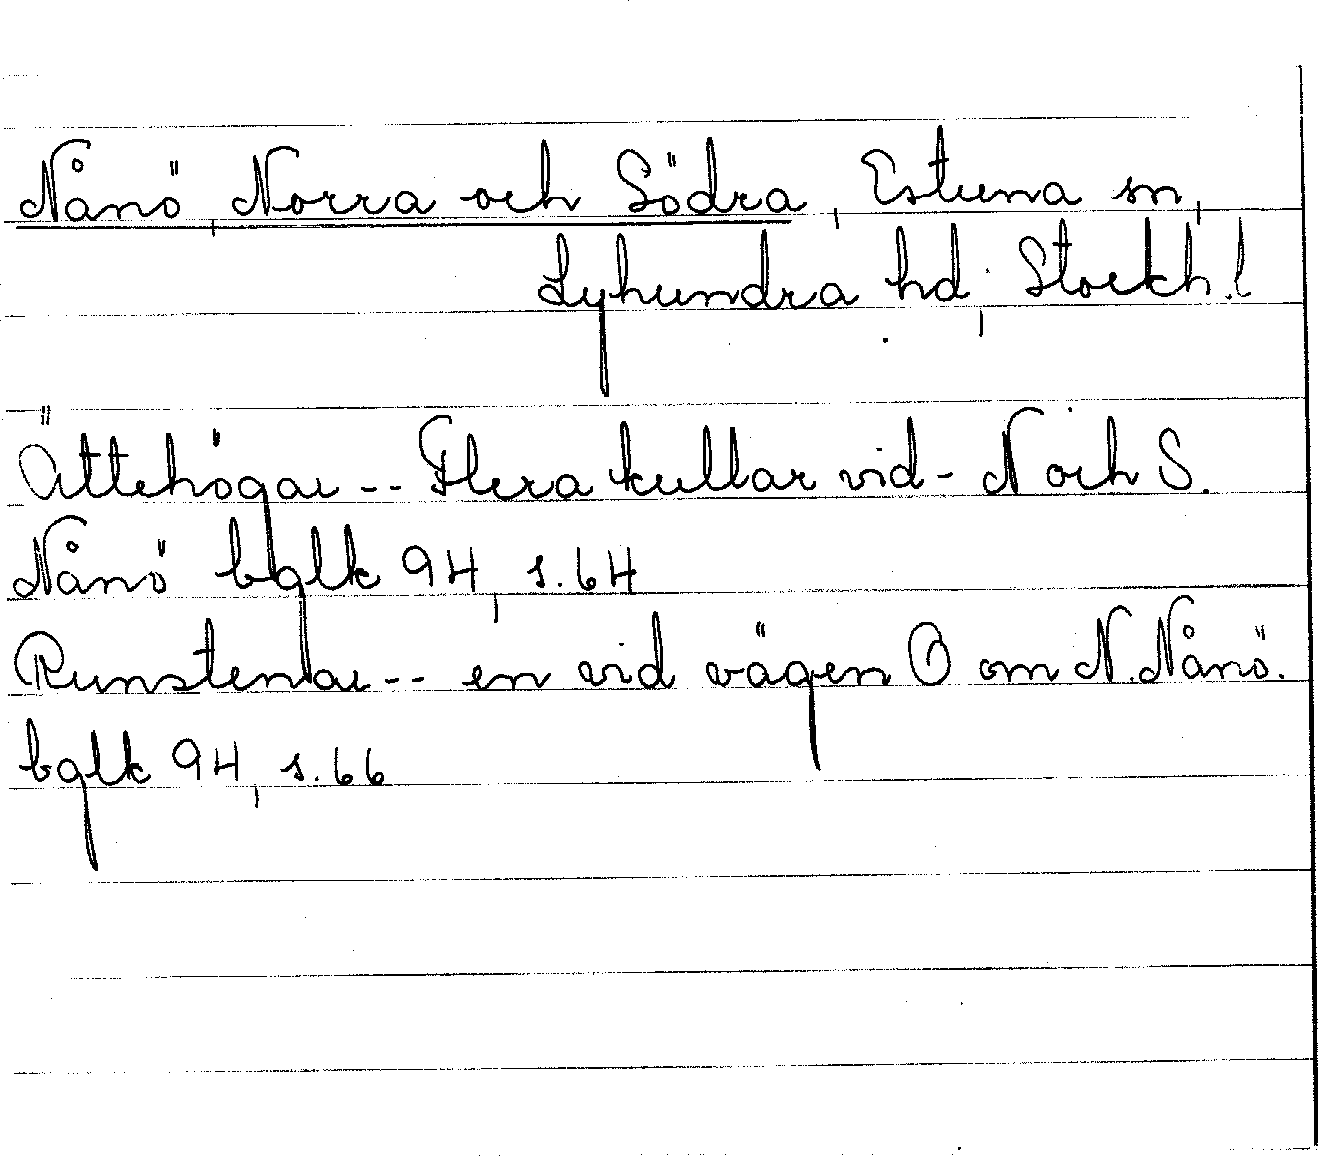 Nånö, Norra och Södra, Estuna sn,
Lyhundra hd, Stockh.l
Ättehögar -- Flera kullar vid - N och S.
Nånö bglk 94, s.64
Runstenar -- en vid vägen O om N. Nånö.
bglk 94, s.66